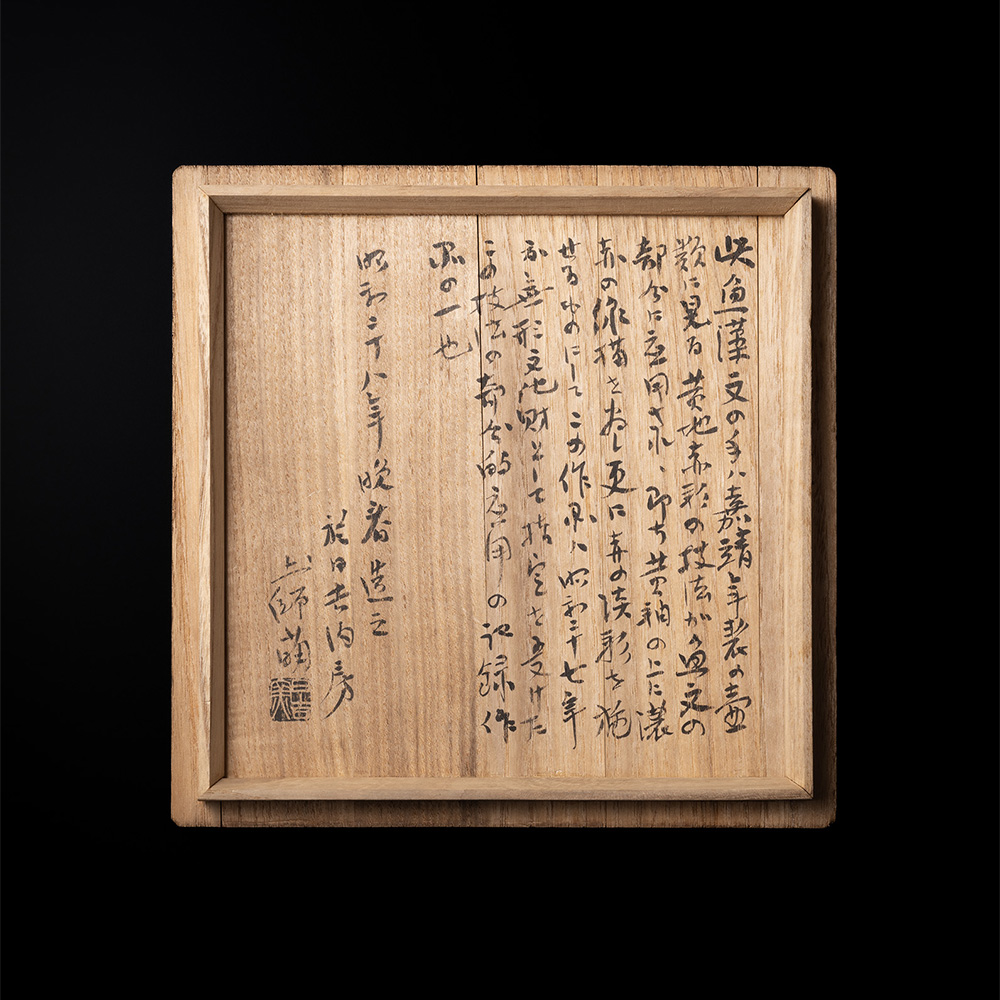 此魚藻文の手ハ嘉靖年製の壷
類に見る黄地赤彩の技法が魚文の
部分に応用され、即ち黄釉の上に濃
赤の線描をおし更に赤の淡彩を施
せるものにしてこの作品ハ昭和二十七年
お無形文化財として指定を受けた
この技法の部分的応用の記録作
品の一也
昭和二十八年晩春造之
於日吉陶房
土師萌